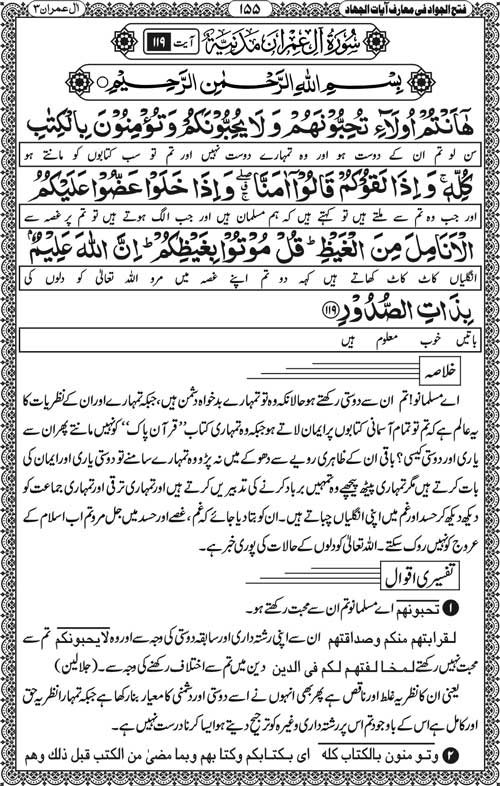 فتح الجواد فی معارف آیات الجهاد ۱۵۵ آل عمران ۳
سُوْرَةُ آلِ عِمْرَان مَدَنِيَّة آیت ۱۱۹
بِسْمِ اللهِ الرَّحْمٰنِ الرَّحِيْمِ
هَآنْتُمْ اُولَآءِ تُحِبُّوْنَهُمْ وَلَا يُحِبُّوْنَكُمْ وَتُؤْمِنُوْنَ بِالْكِتٰبِ
سن لو تم ان کے دوست ہو اور وہ تمہارے دوست نہیں اور تم تو سب کتابوں کو مانتے ہو
كُلِّهٖ ۚ وَاِذَا لَقُوْكُمْ قَالُوْٓا اٰمَنَّا ۖۗ وَاِذَا خَلَوْا عَضُّوْا عَلَيْكُمُ
اور جب وہ تم سے ملتے ہیں تو کہتے ہیں کہ ہم مسلمان ہیں اور جب الگ ہوتے ہیں تو تم پر غصہ سے
الْاَنَامِلَ مِنَ الْغَيْظِ ۗ قُلْ مُوْتُوْا بِغَيْظِكُمْ ۗ اِنَّ اللّٰهَ عَلِيْمٌۢ
انگلیاں کاٹ کاٹ کھاتے ہیں کہہ دو تم اپنے غصہ میں مرو اللہ تعالیٰ کو دلوں کی
بِذَاتِ الصُّدُوْرِ ۱۱۹
باتیں خوب معلوم ہیں
خلاصہ
اے مسلمانو! تم ان سے دوستی رکھتے ہو حالانکہ وہ تو تمہارے بدخواہ دشمن ہیں، جبکہ تمہارے اور ان کے نظریات کا
یہ عالم ہے کہ تم تو تمام آسمانی کتابوں پر ایمان لاتے ہو جبکہ وہ تمہاری کتاب ’’قرآن پاک‘‘ کو نہیں مانتے پھر ان سے
یاری اور دوستی کیسی؟ باقی ان کے ظاہری رویے سے دھوکے میں نہ پڑو وہ تمہارے سامنے تو دوستی یاری اور ایمان کی
بات کرتے ہیں مگر تمہاری پیٹھ پیچھے وہ تمہیں برباد کرنے کی تدبیریں کرتے ہیں اور تمہاری ترقی اور تمہاری جماعت کو
دیکھ دیکھ کر حسد اور غم میں اپنی انگلیاں چباتے ہیں۔ ان کو بتا دیا جائے کہ غم، غصے اور حسد میں جل مرو تم اب اسلام کے
عروج کو نہیں روک سکتے۔ اللہ تعالیٰ کو دلوں کے حالات کی پوری خبر ہے۔
تفسیری اقوال
۱ تحبونهم اے مسلمانو تم ان سے محبت رکھتے ہو۔
لقرابتهم منکم وصداقتهم ان سے اپنی رشتہ داری اور سابقہ دوستی کی وجہ سے اور وہ لایحبونکم تم سے
محبت نہیں رکھتے لمخالفتهم لکم فی الدین دین میں تم سے اختلاف رکھنے کی وجہ سے۔ (جلالین)
یعنی ان کا نظریہ غلط اور ناقص ہے پھر بھی انہوں نے اسے دوستی اور دشمنی کا معیار بنا رکھا ہے جبکہ تمہارا نظریہ حق
اور کامل ہے اس کے باوجود تم اس پر رشتہ داری وغیرہ کو ترجیح دیتے ہو ایسا کرنا درست نہیں ہے۔
۲ وتو منون بالکتاب کله ای بکتابکم وکتابهم وبما مضیٰ من الکتب قبل ذلك وهم